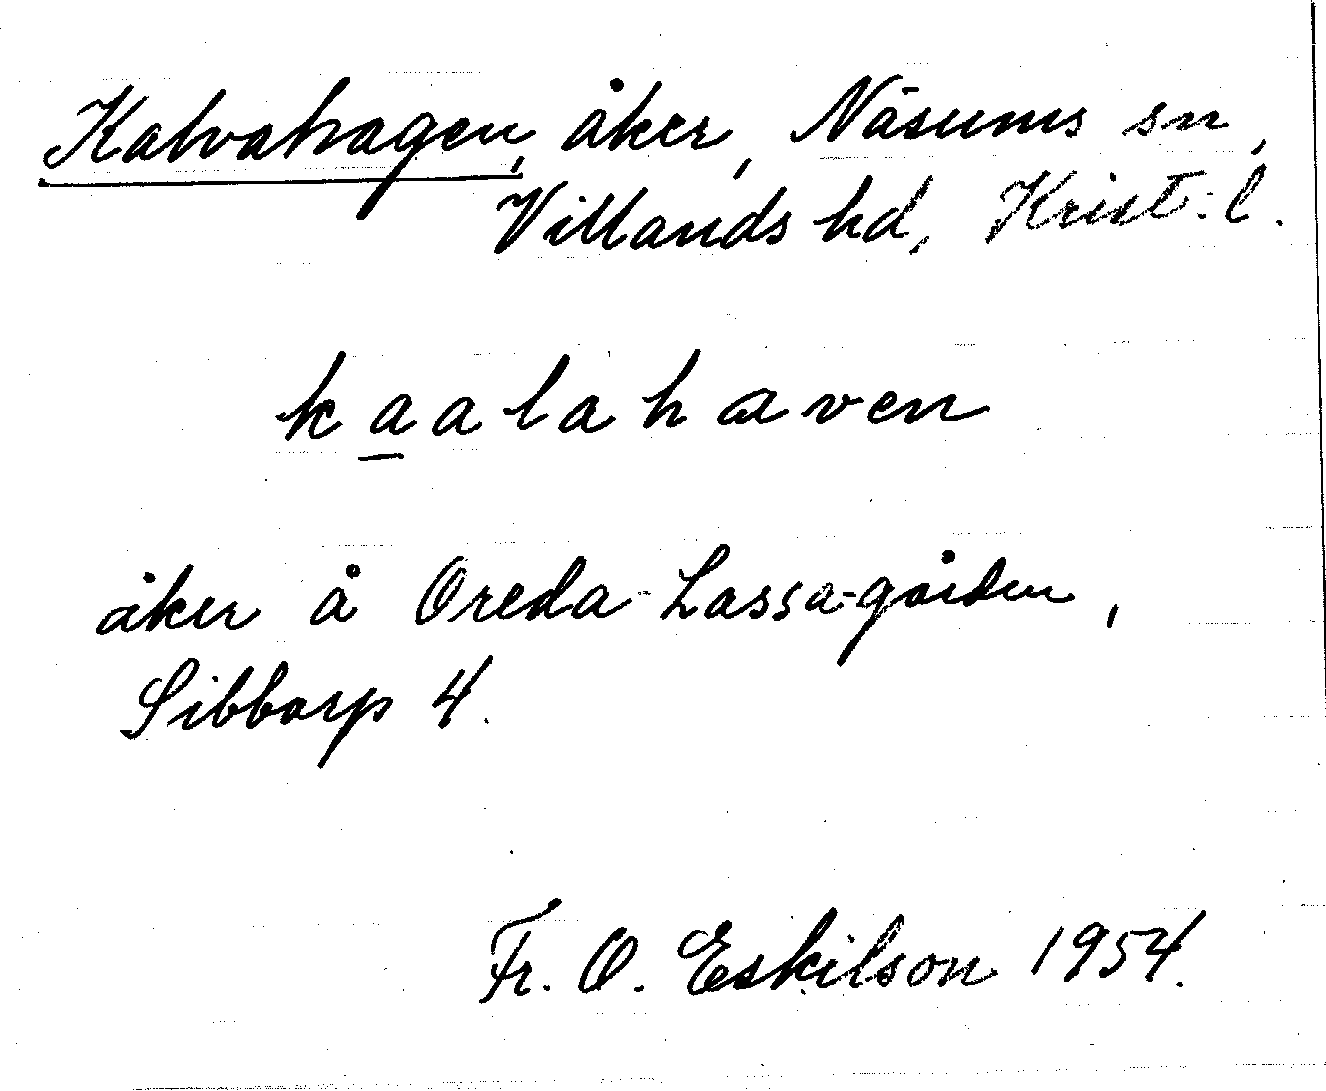 Kalvahagen, åker, Näsums sn,
Villands hd, Krist:l.
kaalahaven
åker å Oreda-Lassa-gården,
Sibbarp 4.
Fr. O. Eskilson 1954.